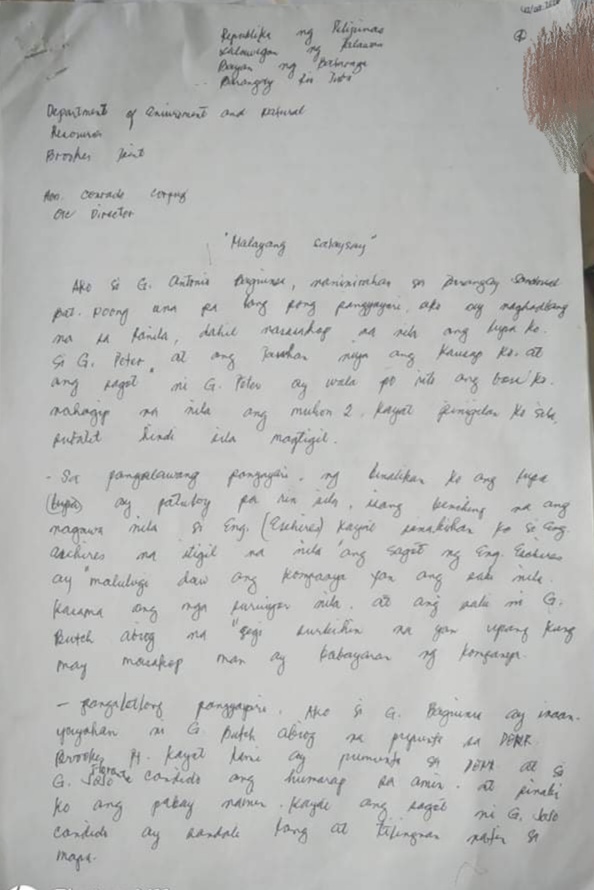 Republika ng Pilipinas
Lalawigan ng Palawan
Bayan ng Bataraza
Barangay Rio Tuba
Department of Enviroment and Natural
Resources
Brookes Point
Hon. Conrado Corpuz
OIC Director
"Malayang Salaysay"
Ako si G. Antonio Baguinsa, naninirahan sa Barangay Sandoval
Bat. Noong una pa lang pong pangyayari, ako ay naghadlang
na sa kanila, dahil nasasakop na nila ang lupa ko.
Si G. Peter at ang Tauhan niya ang kausap ko. at
ang sagot ni G. Peter ay wala po rito ang boss ko.
nahagip na nila ang muhon 2. kayat pinigilan ko sila,
subalit hindi sila magtigil.
- Sa pangalawang pangyayari, ng binalikan ko ang lupa
(lupa) ay patuloy pa rin sila, isang na ang
nagawa nila si Eng. (Eschires) kayat sinabihan ko si Eng.
Eschires na itigil na nila "ang sagot ng Eng. Eschires
ay "malulugi daw ang kompanya yan ang sabi nila.
kasama ang mga surveyor nila. at ang sabi ni G.
Butch Abiog na "sigi na yan upang kung
may masakop man ay babayaran ng kompanya.
- pangatlong pangyayari. Ako si G. Baguinsa ay inaan-
yayahan ni G. Butch Abiog na pupunta sa DENR
Brookes Pt. kayat kami ay pumunta sa DENR at si
G. Candido ang humarap sa amin. at sinabi
ko ang pakay namin. kayat ang sagot ni G.
Candido ay sandali lang at tilingnan natin sa
mapa.